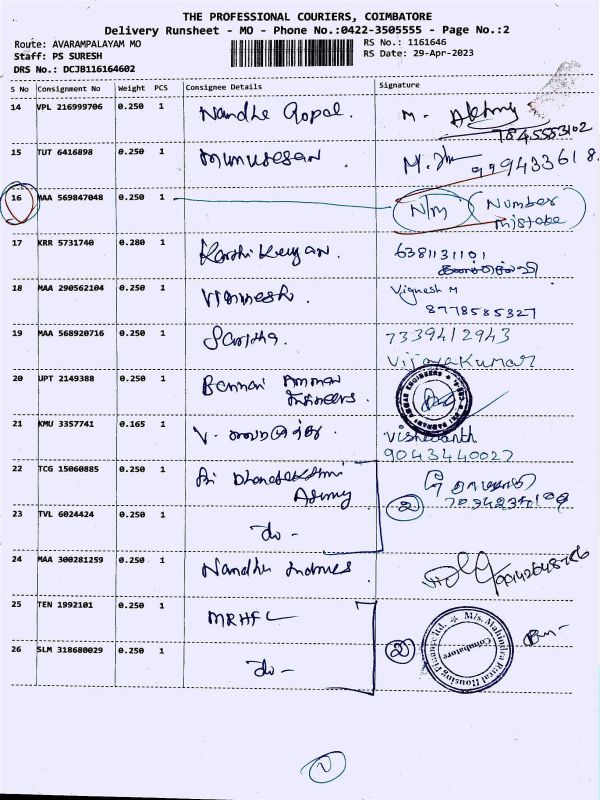 THE PROFESSIONAL COURIERS, COIMBATORE
Delivery Runsheet - MO - Phone No.:0422-3505555 - Page No.:2
Route: AVARAMPALAYAM MO
RS No.: 1161646
Staff: PS SURESH
RS Date: 29-Apr-2023
DRS No.: DCJB116164602
S No Consignment No Weight PCS Consignee Details Signature
14 VPL 216999706 0.250 1 Nandha Gopal. M.
7845553102
15 TUT 6416898 0.250 1 Murugesan M.
9994433618.
16 MAA 569847048 0.250 1 N/M Number
mistake
17 KRR 5731740 0.280 1 Karthikeyan. 6381131101
18 MAA 290562104 0.250 1 Vignesh. Vignesh M
8778585327
19 MAA 568920716 0.250 1 7339412943
Vijayakumar
20 UPT 2149388 0.250 1 Bannari Amman
Engineers.
21 KMU 3357741 0.165 1 V. Vishwanth
9043440027
22 TCG 15060885 0.250 1 Sri Dhanalakshmi
Agency
2
23 TVL 6024424 0.250 1 do -
24 MAA 300281259 0.250 1 Nandhu
25 TEN 1992101 0.250 1 MRHFL
2
M/s. Mahindra Rural Housing Finance Ltd.
Coimbatore
26 SLM 318680029 0.250 1 do -